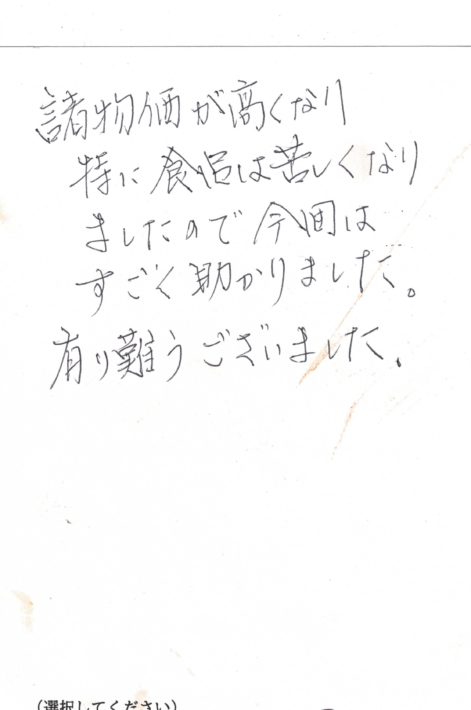 諸物価が高くなり
特に食品は苦しくなり
ましたので今回は
すごく助かりました。
有り難うございました。
(選択してください)